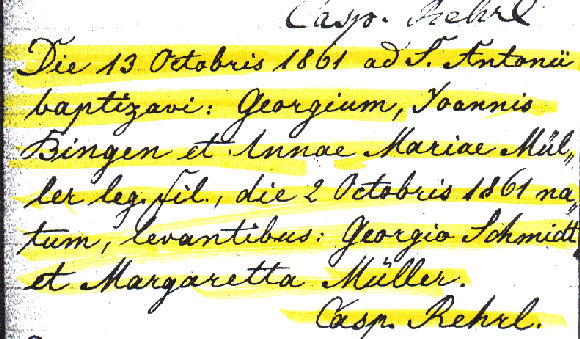 Casp. Rehrl
Die 13 Octobris 1861 ad S. Antonii
baptizavi: Georgium, Joannis
Bingen et Annae Mariae Mül„
ler leg. fil., die 2 Octobris 1861 na„
tum, levantibus: Georgio Schmidt,
et Margaretta Müller.
Casp. Rehrl.